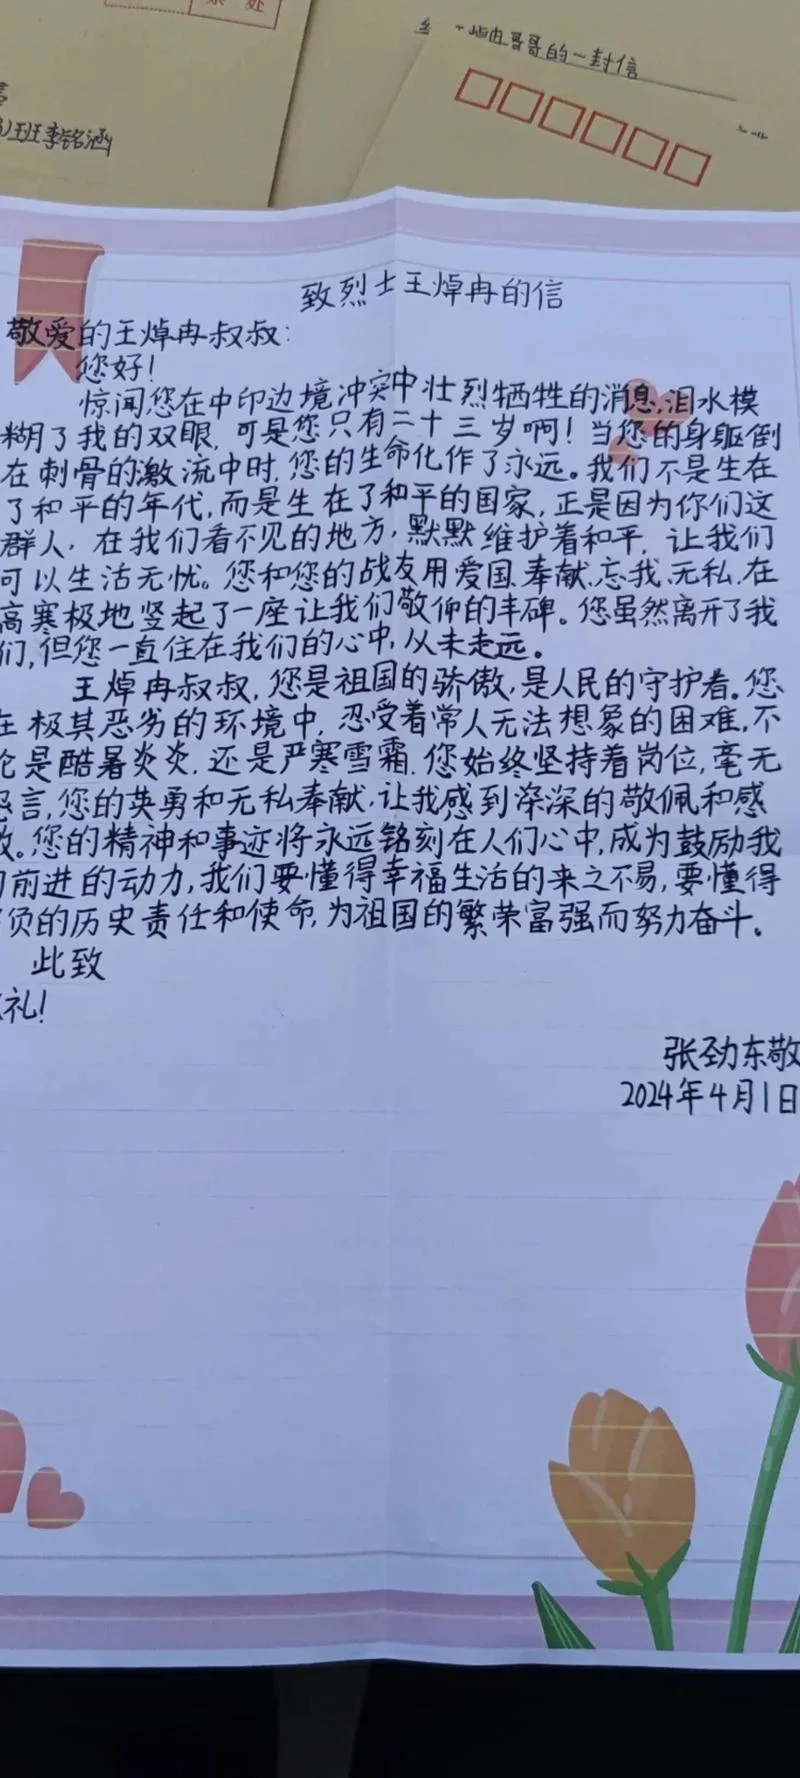 票 处
班李铭涵
哥哥的一封信
致烈士王焯冉的信
敬爱的王焯冉叔叔:
您好!
惊闻您在中印边境冲突中壮烈牺牲的消息,泪水模
糊了我的双眼,可是您只有二十三岁啊!当您的身躯倒
在刺骨的激流中时,您的生命化作了永远。我们不是生在
了和平的年代,而是生在了和平的国家,正是因为你们这
群人,在我们看不见的地方,默默维护着和平,让我们
可以生活无忧。您和您的战友用爱国、奉献、忘我、无私,在
高寒极地竖起了一座让我们敬仰的丰碑。您虽然离开了我
们,但您一直住在我们的心中,从未走远。
王焯冉叔叔,您是祖国的骄傲,是人民的守护者。您
在极其恶劣的环境中,忍受着常人无法想象的困难,不
论是酷暑炎炎,还是严寒雪霜,您始终坚持着岗位,毫无
怨言,您的英勇和无私奉献,让我感到深深的敬佩和感
激。您的精神和事迹将永远铭刻在人们心中,成为鼓励我
们前进的动力,我们要懂得幸福生活的来之不易,要懂得
负的历史责任和使命,为祖国的繁荣富强而努力奋斗。
此致
礼!
张劲东敬
2024年4月1日